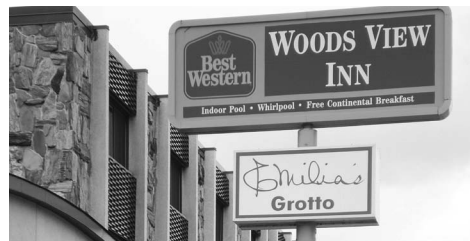 Best
Western
WOODS VIEW
INN
Indoor Pool • Whirlpool • Free Continental Breakfast
Emilia's
Grotto